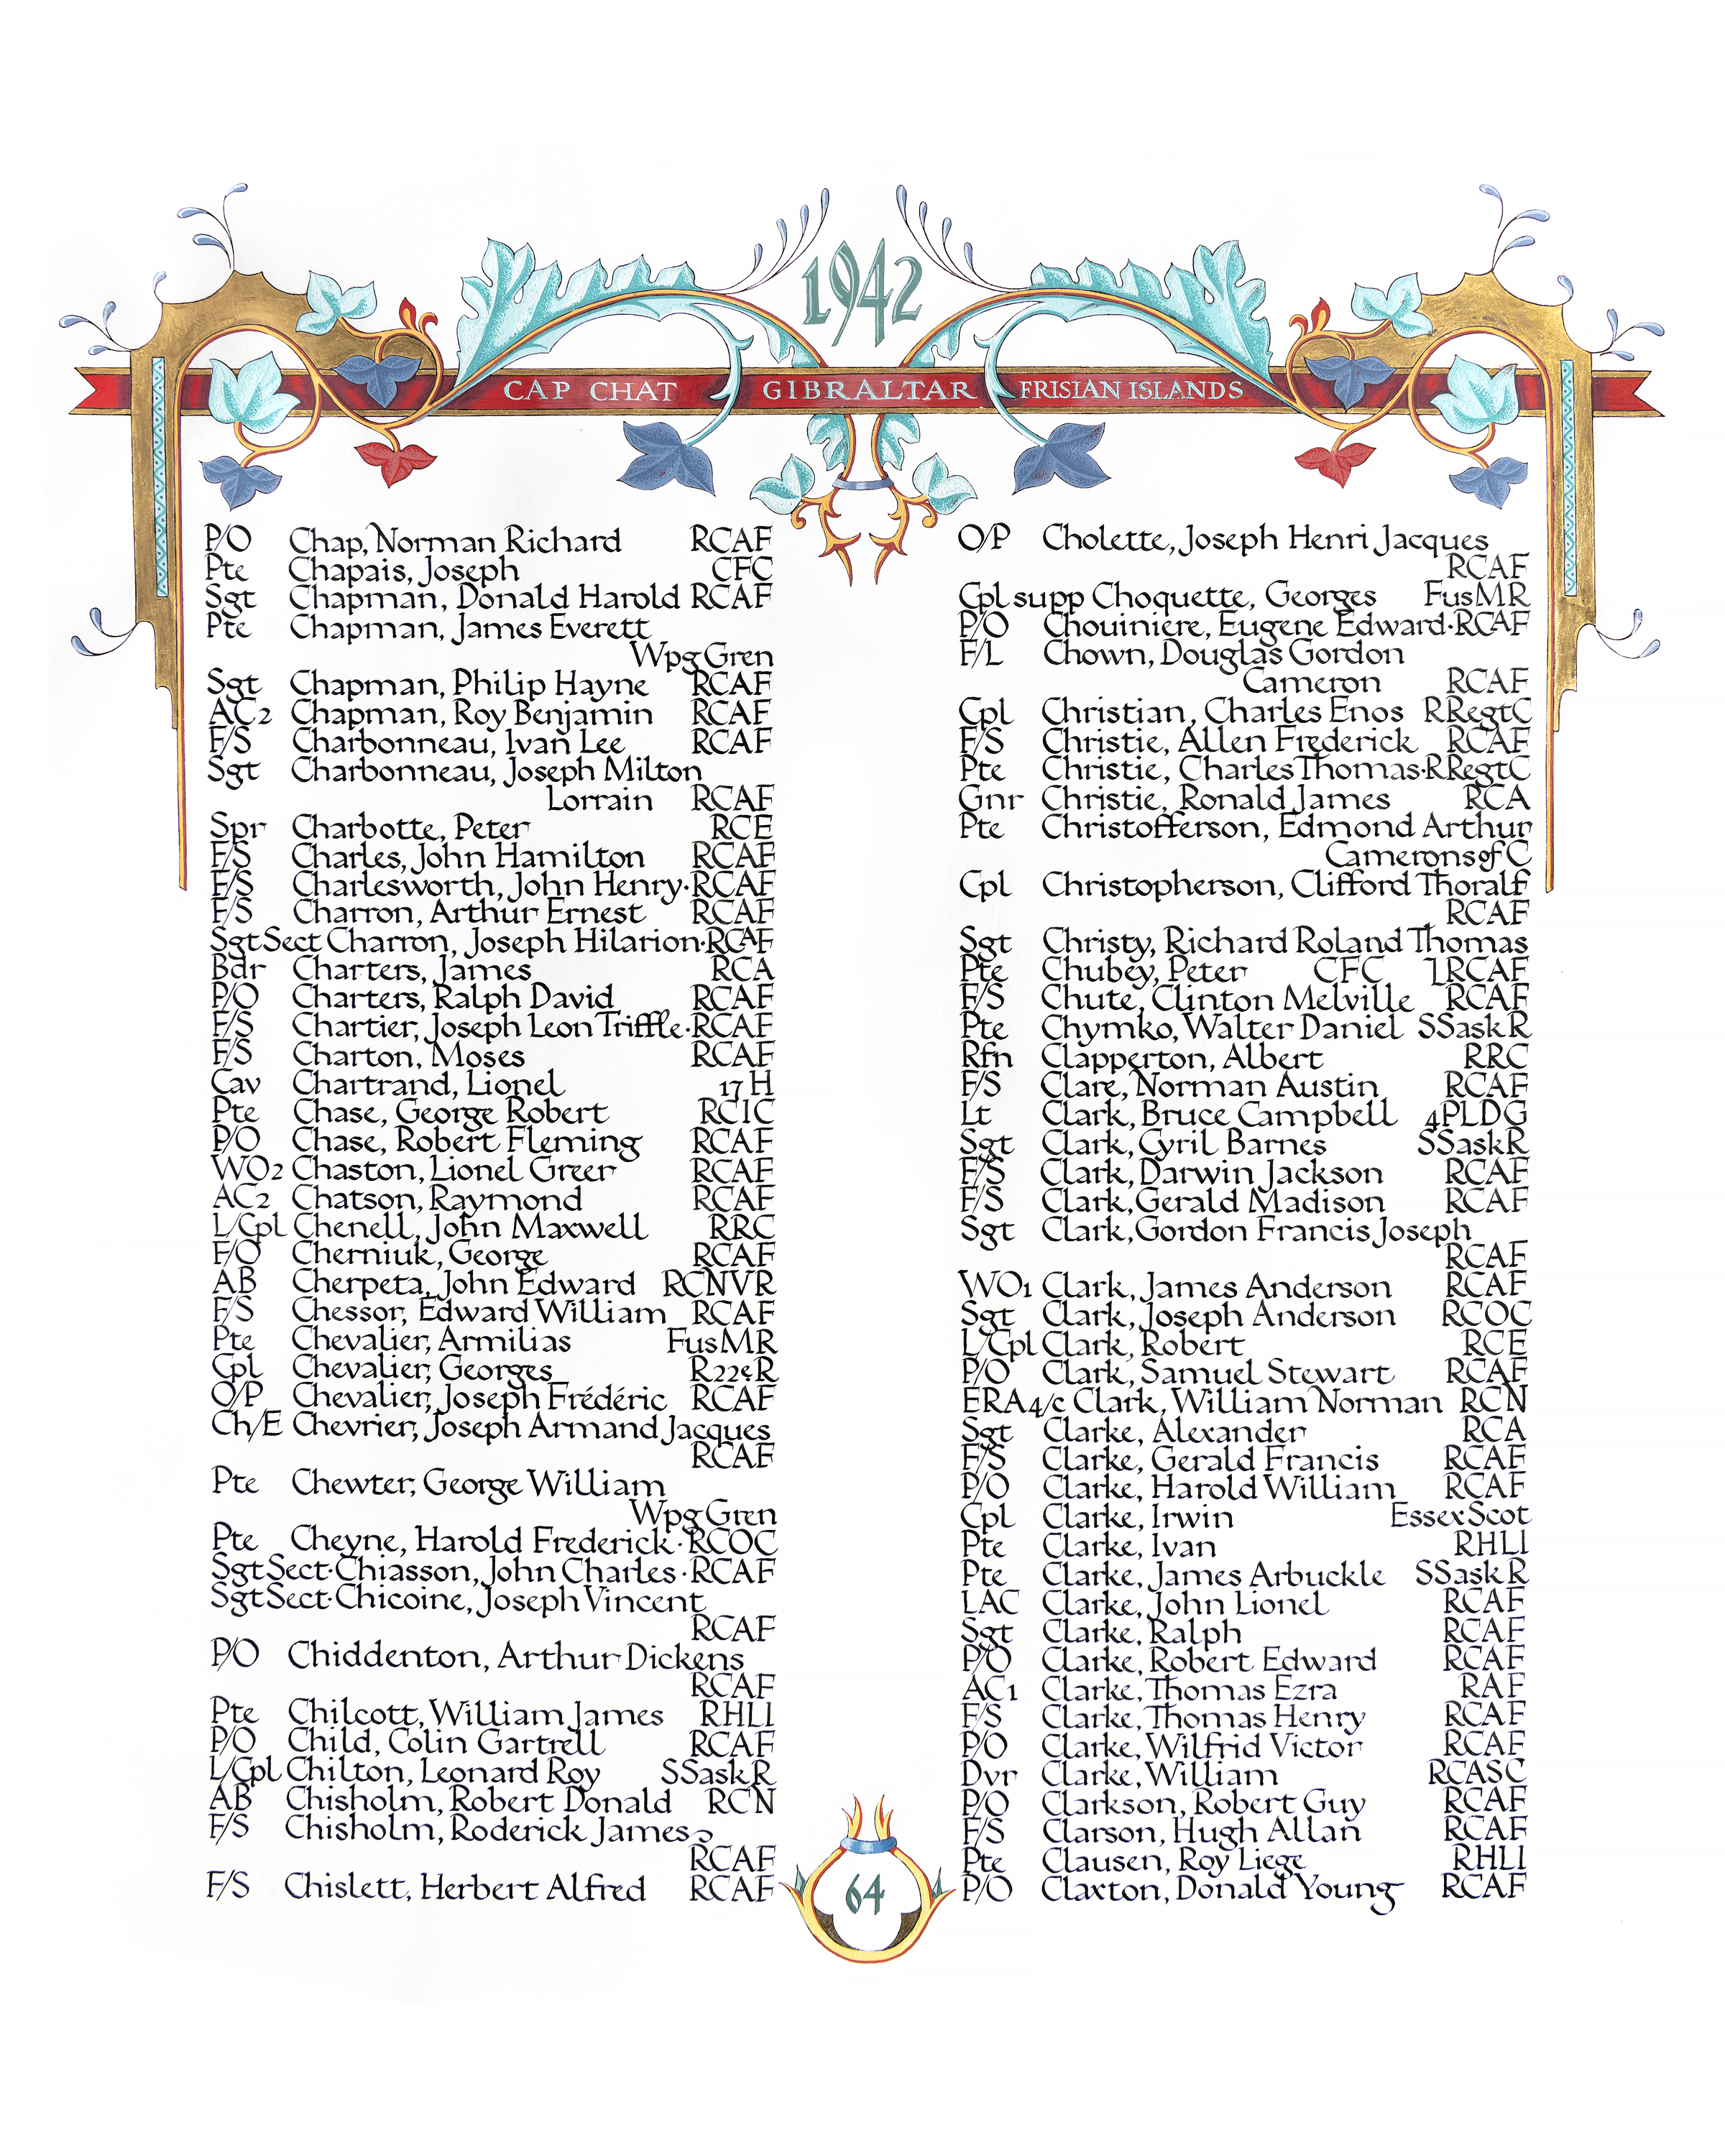 1942
CAP CHAT GIBRALTAR FRISIAN ISLANDS
P/O Chap, Norman Richard RCAF
Pte Chapais, Joseph CFC
Sgt Chapman, Donald Harold RCAF
Pte Chapman, James Everett
Wpg Gren
Sgt Chapman, Philip Hayne RCAF
AC2 Chapman, Roy Benjamin RCAF
F/S Charbonneau, Ivan Lee RCAF
Sgt Charbonneau, Joseph Milton
Lorrain RCAF
Spr Charbotte, Peter RCE
F/S Charles, John Hamilton RCAF
F/S Charlesworth, John Henry·RCAF
F/S Charron, Arthur Ernest RCAF
Sgt Sect Charron, Joseph Hilarion·RCAF
Bdr Charters, James RCA
P/O Charters, Ralph David RCAF
F/S Chartier, Joseph Leon Triffle·RCAF
F/S Charton, Moses RCAF
Cav Chartrand, Lionel 17 H
Pte Chase, George Robert RCIC
P/O Chase, Robert Fleming RCAF
WO2 Chaston, Lionel Greer RCAF
AC2 Chatson, Raymond RCAF
L/Cpl Chenell, John Maxwell RRC
F/O Cherniuk, George RCAF
AB Cherpeta, John Edward RCNVR
F/S Chessor, Edward William RCAF
Pte Chevalier, Armilias FusMR
Cpl Chevalier, Georges R22eR
O/P Chevalier, Joseph Frédéric RCAF
Ch/E Chevrier, Joseph Armand Jacques
RCAF
Pte Chewter, George William
Wpg Gren
Pte Cheyne, Harold Frederick·RCOC
Sgt Sect·Chiasson, John Charles·RCAF
Sgt Sect·Chicoine, Joseph Vincent
RCAF
P/O Chiddenton, Arthur Dickens
RCAF
Pte Chilcott, William James RHLI
P/O Child, Colin Gartrell RCAF
L/Cpl Chilton, Leonard Roy SSaskR
AB Chisholm, Robert Donald RCN
F/S Chisholm, Roderick James
RCAF
F/S Chislett, Herbert Alfred RCAF
O/P Cholette, Joseph Henri Jacques
RCAF
Cpl supp Choquette, Georges FusMR
P/O Chouiniere, Eugene Edward·RCAF
F/L Chown, Douglas Gordon
Cameron RCAF
Cpl Christian, Charles Enos RRegtC
F/S Christie, Allen Frederick RCAF
Pte Christie, Charles Thomas·RRegtC
Gnr Christie, Ronald James RCA
Pte Christofferson, Edmond Arthur
Camerons of C
Cpl Christopherson, Clifford Thoralf
RCAF
Sgt Christy, Richard Roland Thomas
Pte Chubey, Peter CFC ⌋RCAF
F/S Chute, Clinton Melville RCAF
Pte Chymko, Walter Daniel SSaskR
Rfn Clapperton, Albert RRC
F/S Clare, Norman Austin RCAF
Lt Clark, Bruce Campbell 4PLDG
Sgt Clark, Cyril Barnes SSaskR
F/S Clark, Darwin Jackson RCAF
F/S Clark, Gerald Madison RCAF
Sgt Clark, Gordon Francis Joseph
RCAF
WO1 Clark, James Anderson RCAF
Sgt Clark, Joseph Anderson RCOC
L/Cpl Clark, Robert RCE
P/O Clark, Samuel Stewart RCAF
ERA4/c Clark, William Norman RCN
Sgt Clarke, Alexander RCA
F/S Clarke, Gerald Francis RCAF
P/O Clarke, Harold William RCAF
Cpl Clarke, Irwin EssexScot
Pte Clarke, Ivan RHLI
Pte Clarke, James Arbuckle SSaskR
LAC Clarke, John Lionel RCAF
Sgt Clarke, Ralph RCAF
P/O Clarke, Robert Edward RCAF
AC1 Clarke, Thomas Ezra RAF
F/S Clarke, Thomas Henry RCAF
P/O Clarke, Wilfrid Victor RCAF
Dvr Clarke, William RCASC
P/O Clarkson, Robert Guy RCAF
F/S Clarson, Hugh Allan RCAF
Pte Clausen, Roy Liege RHLI
P/O Claxton, Donald Young RCAF
64